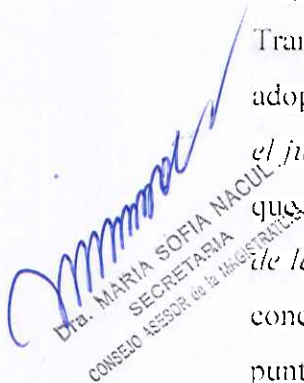 Tran
adop
el ju
que
de la
conc
punt
Dra. MARIA SOFIA NACUL
SECRETARIA
CONSEJO ASESOR de la MAGISTRATURA